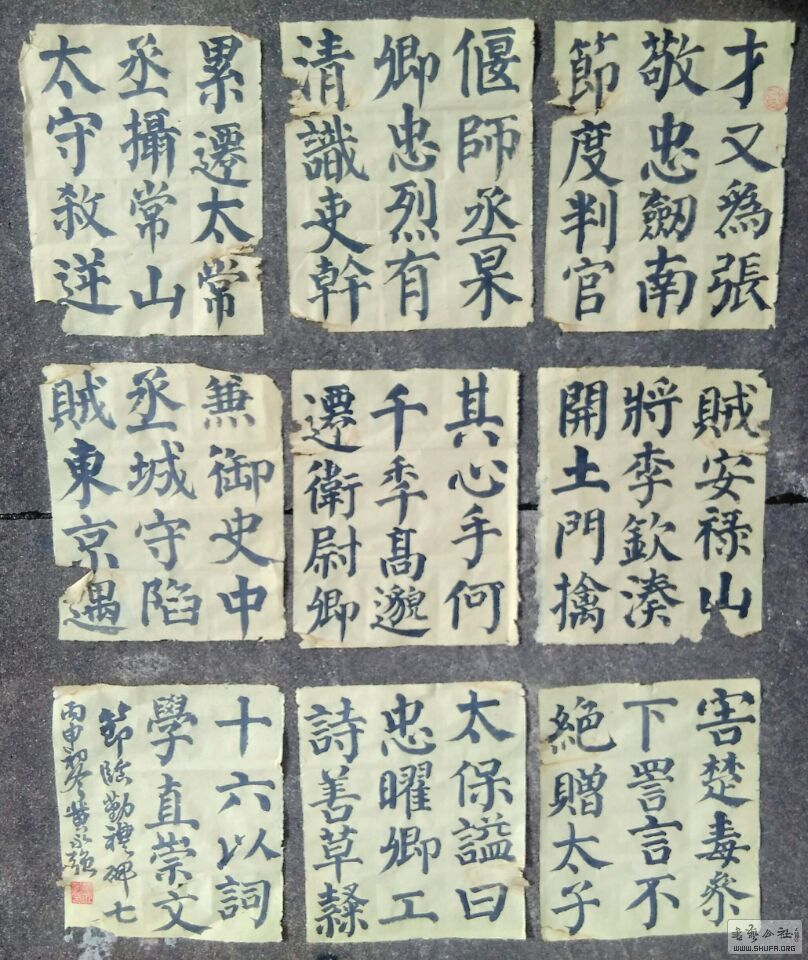 才又爲張
敬忠劒南
節度判官
偃師丞杲
卿忠烈有
清識吏幹
累遷太常
丞攝常山
太守殺逆
賊安祿山
將李欽湊
開土門擒
其心手何
千秊髙邈
遷衛尉卿
兼御史中
丞城守陷
賊東京遇
害楚毒參
下詈言不
絕贈太子
太保謚曰
忠曜卿工
詩善草隸
十六以詞
學直崇文
節臨勤禮碑七
丙申初冬黃永強
書藝公社
WWW.SHUFA.ORG